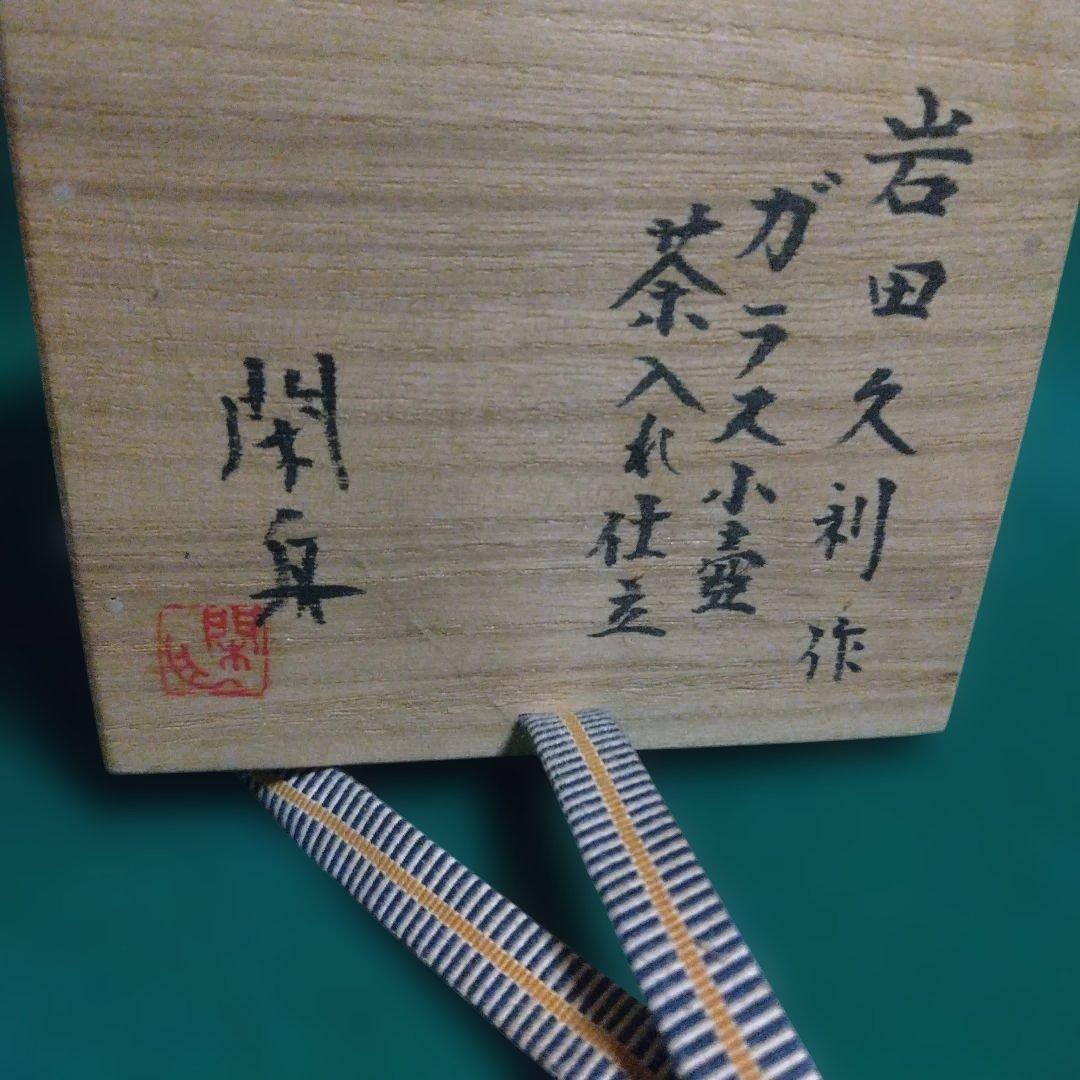 岩田久利作
ガラス小壷
茶入れ仕立
閑
閑